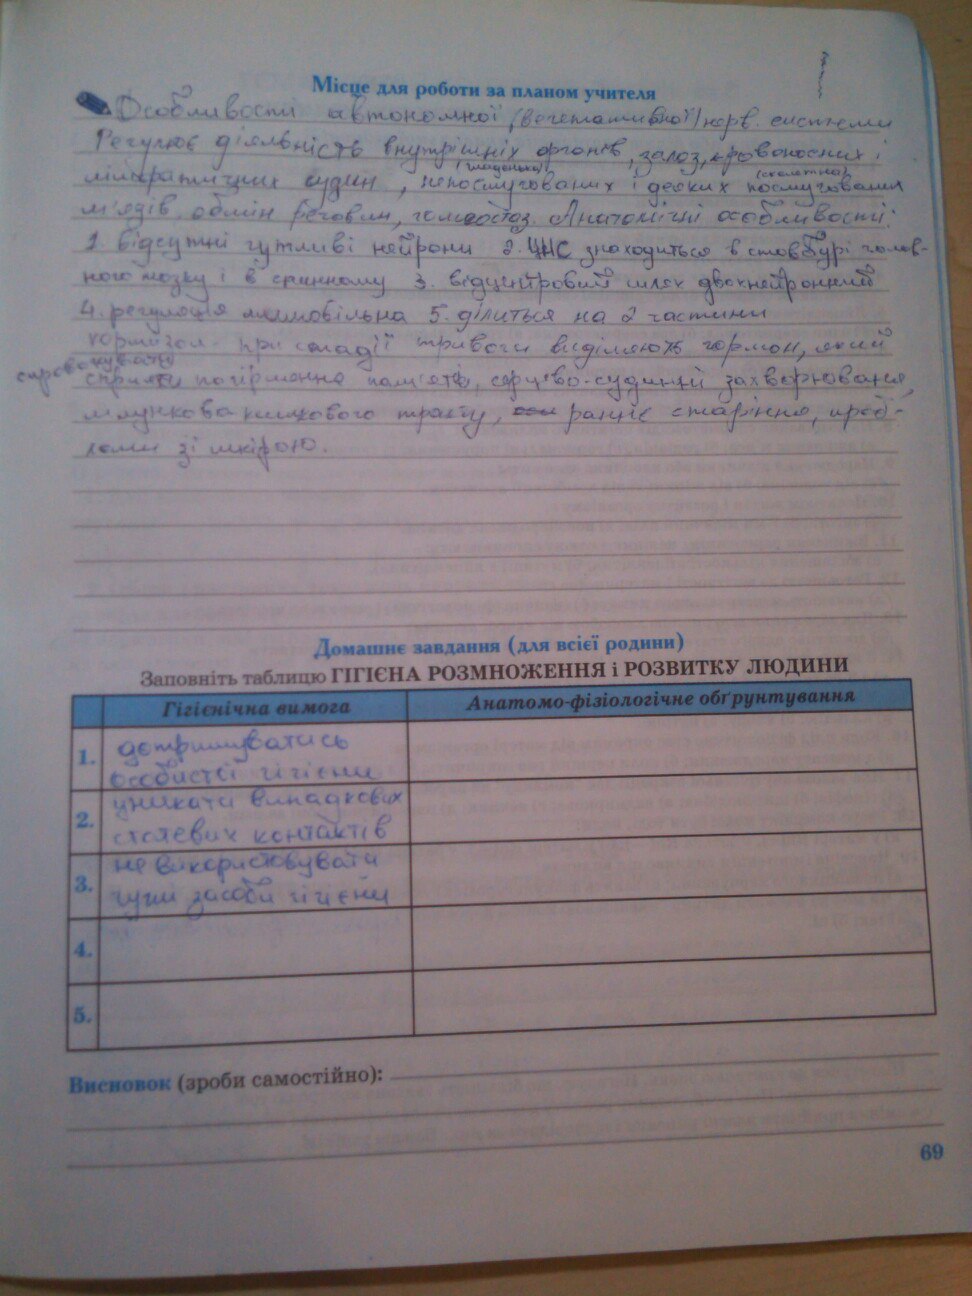 Місце для роботи за планом учителя
Особливості автономної (вегетативної) нерв. системи
Регулює діяльність внутрішніх органів, залоз, кровоносних і
(гладеньких) (скелетна)
лімфатичних судин, непосмугованих і деяких посмугованих
м'язів, обмін речовин, гомеостаз. Анатомічні особливості:
1. відсутні чутливі нейрони 2. ЦНС знаходиться в стовбурі голов-
ного мозку і в спинному 3. відцентровий шлях двохнейронний
4. регуляція мимовільна 5. ділиться на 2 частини
при стадії тривоги виділяють гормон, який
спровокувати
погіршення пам'яті, серцево-судинні захворювання,
шлунково кишкового тракту, раннє старіння, проб-
леми зі шкірою.
Домашнє завдання (для всієї родини)
Заповніть таблицю ГІГІЄНА РОЗМНОЖЕННЯ і РОЗВИТКУ ЛЮДИНИ
Гігієнічна вимога Анатомо-фізіологічне обґрунтування
1. дотримуватись
особистої гігієни
2. уникати випадкових
статевих контактів
3. не використовувати
чужі засоби гігієни
4.
5.
Висновок (зроби самостійно):
69